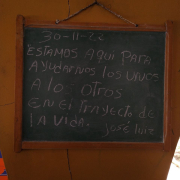 30-11-22
ESTAMOS AQUI PARA
AYUDARNOS LOS UNOS
A LOS OTROS
EN EL TRAYECTO DE
LA VIDA.
José Luis